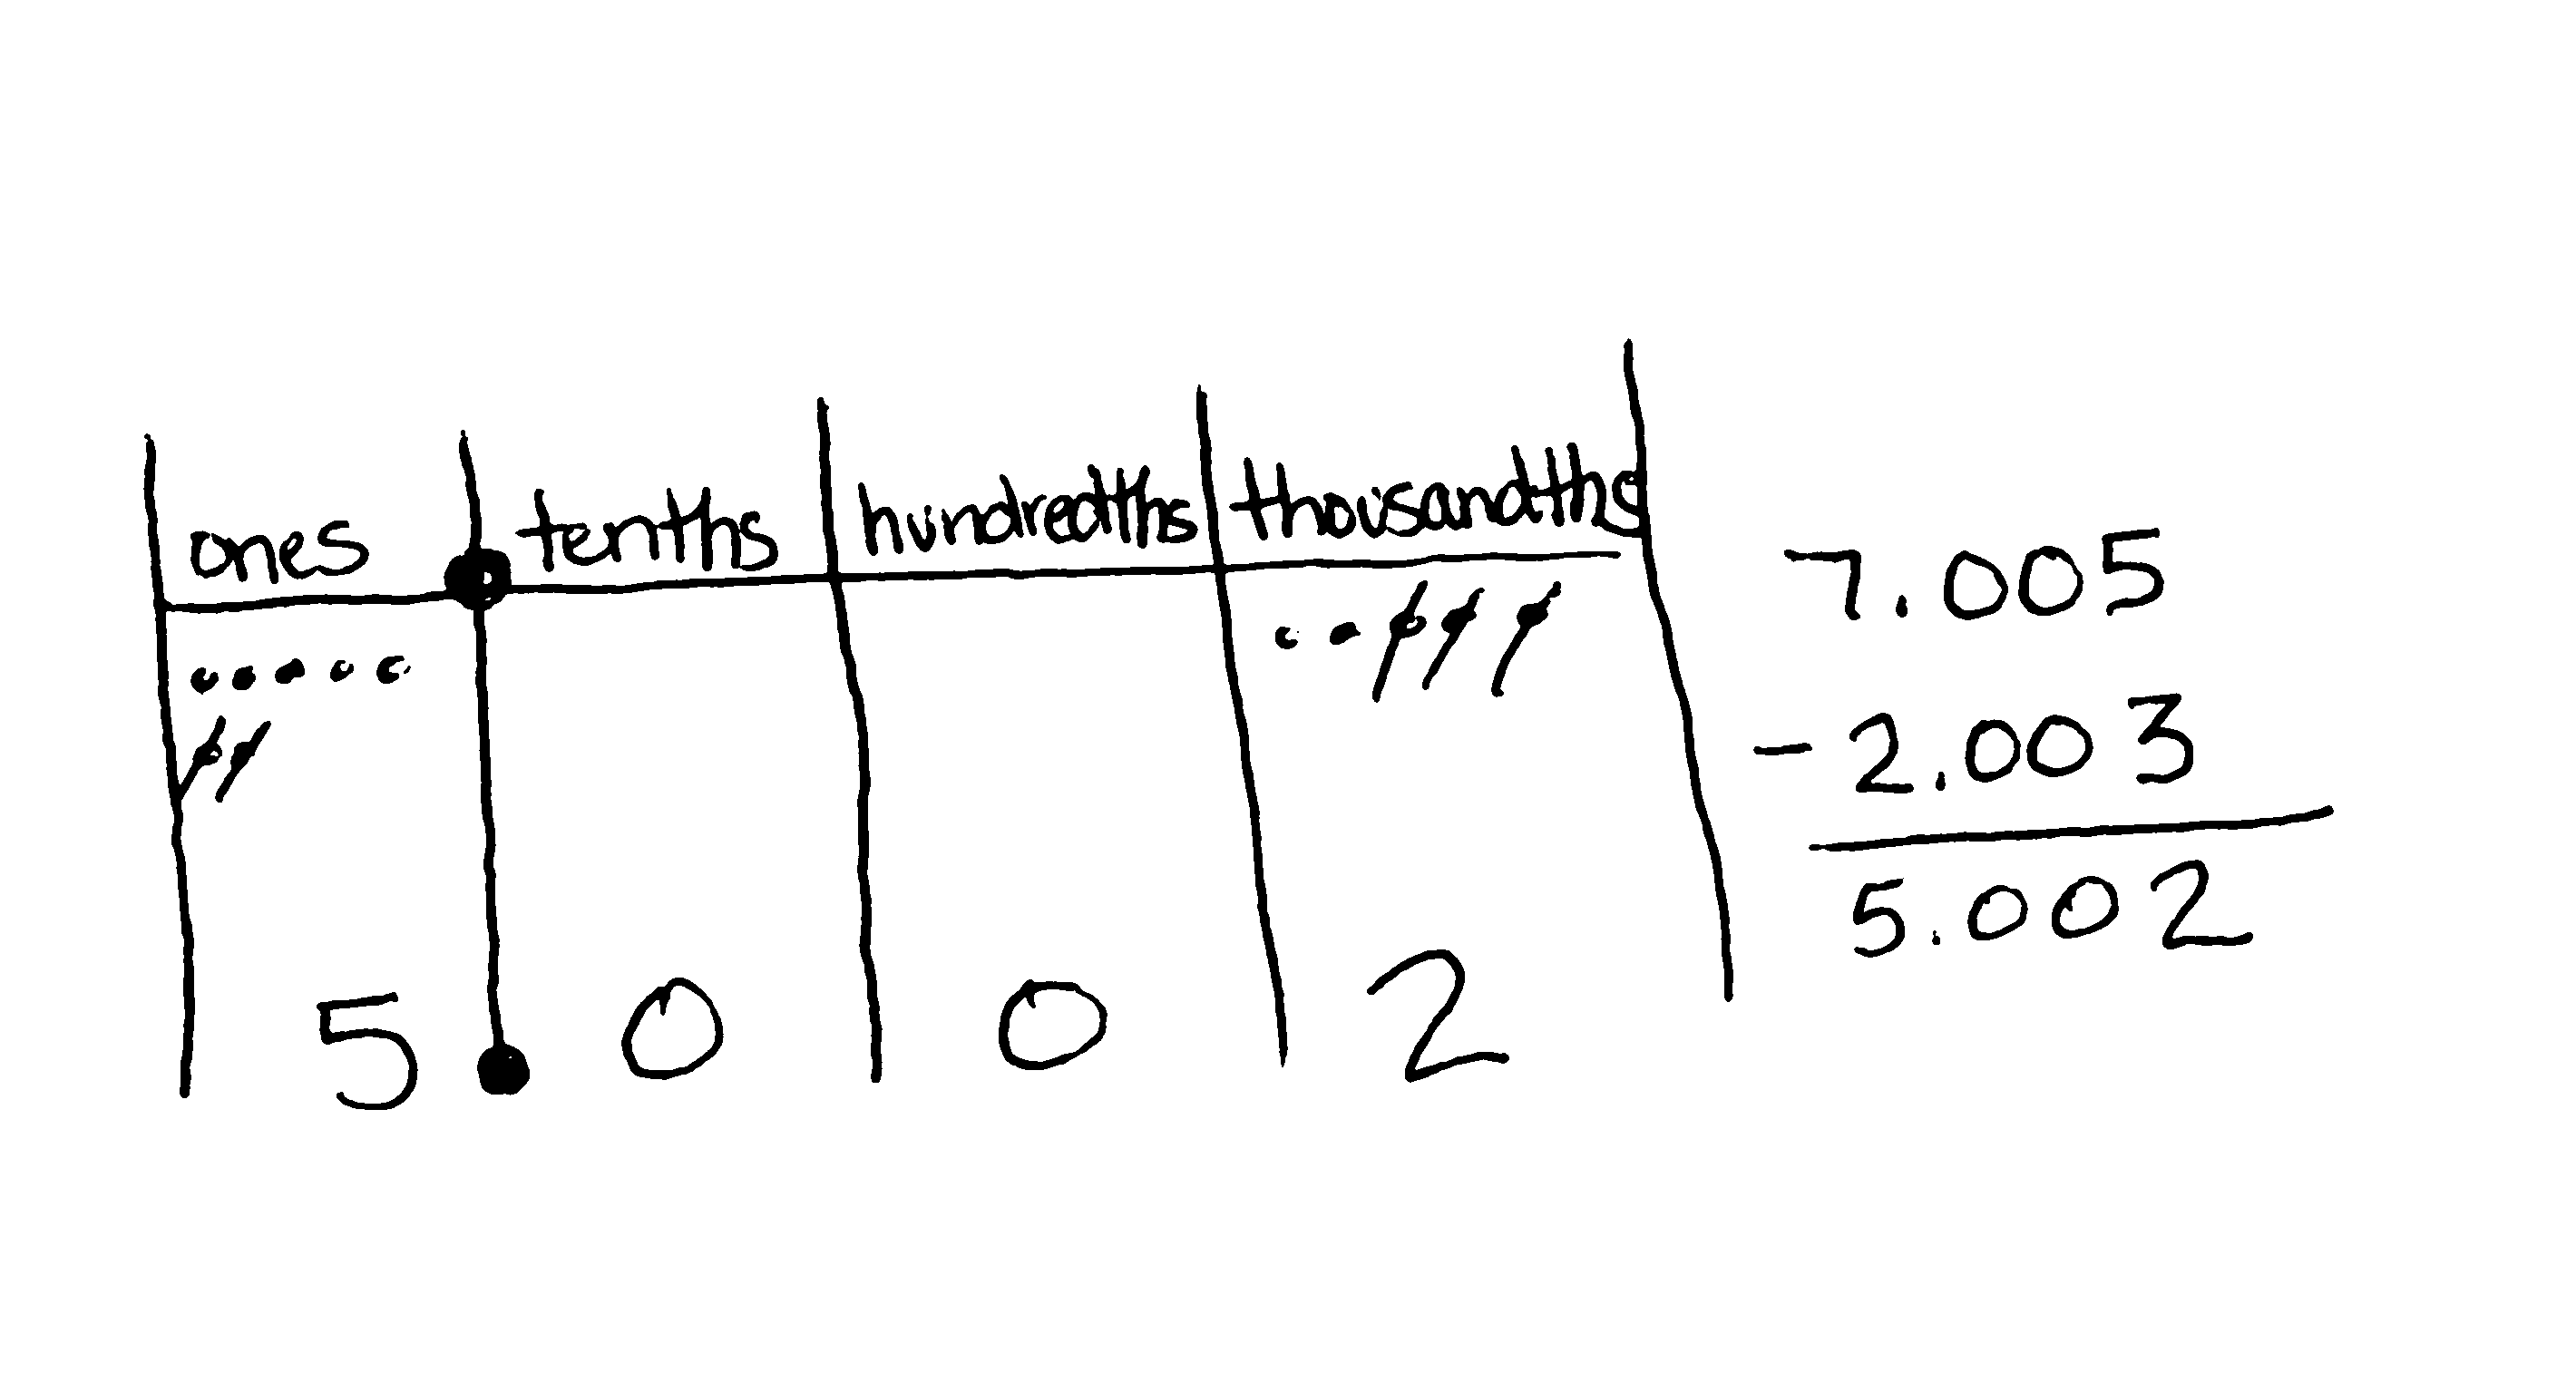 ones tenths hundredths thousandths
5 . 0 0 2
7.005
- 2.003
5.002